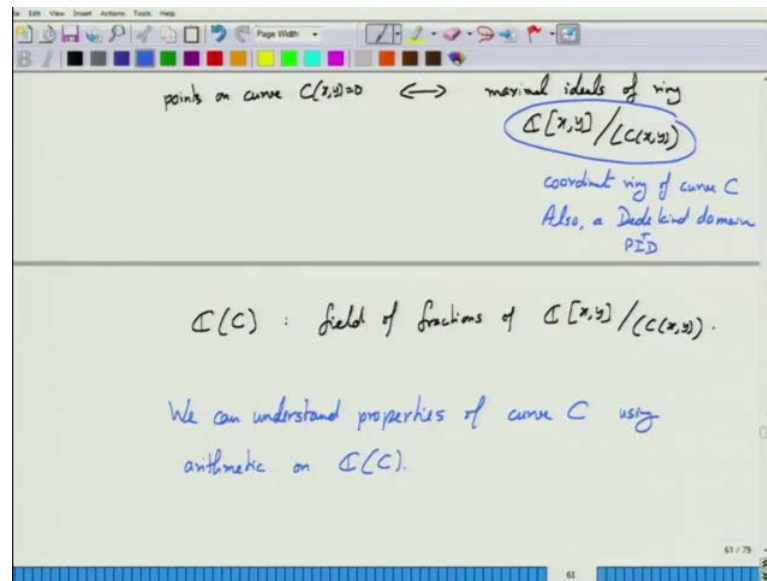 Edit View Insert Actions Tools Help
Page Width
points on curve C(x,y)=0 <—> maximal ideals of ring
ℂ[x,y]/(C(x,y))
coordinate ring of curve C
Also, a Dedekind domain
PID
ℂ(C) : field of fractions of ℂ[x,y]/(C(x,y)).
We can understand properties of curve C using
arithmetic on ℂ(C).
61 / 79
61